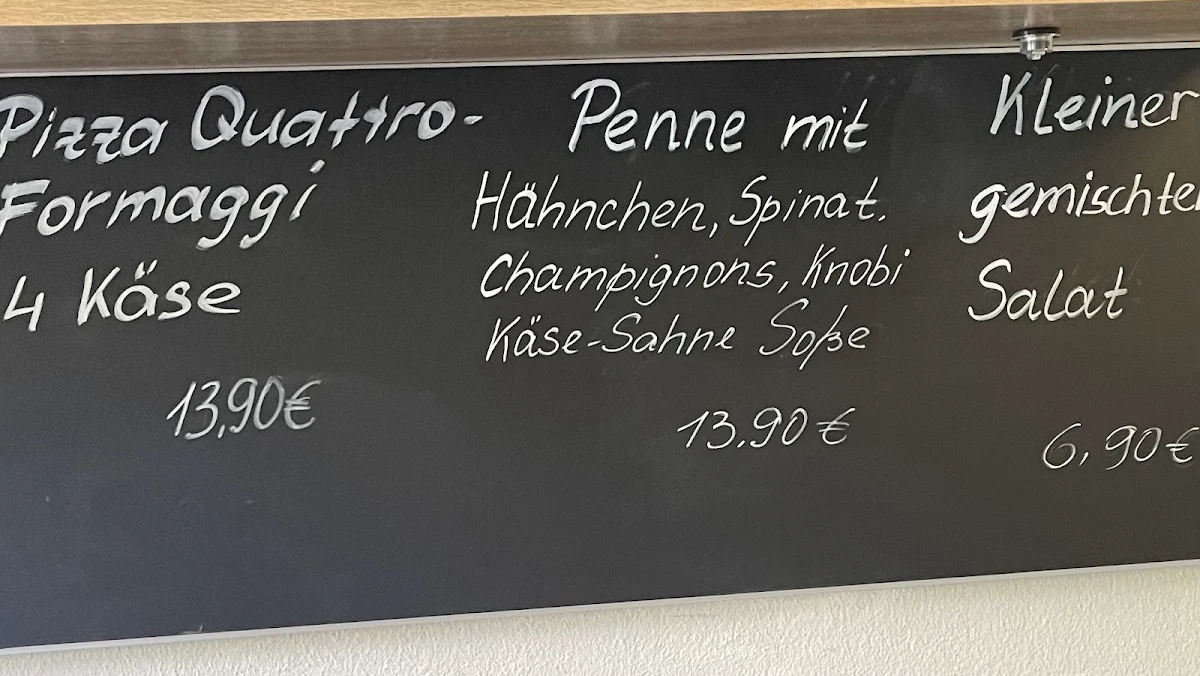 Pizza Quattro-
Formaggi
4 Käse
13,90€
Penne mit
Hähnchen, Spinat.
Champignons, Knobi
Käse-Sahne Soße
13.90€
Kleiner
gemischter
Salat
6,90€